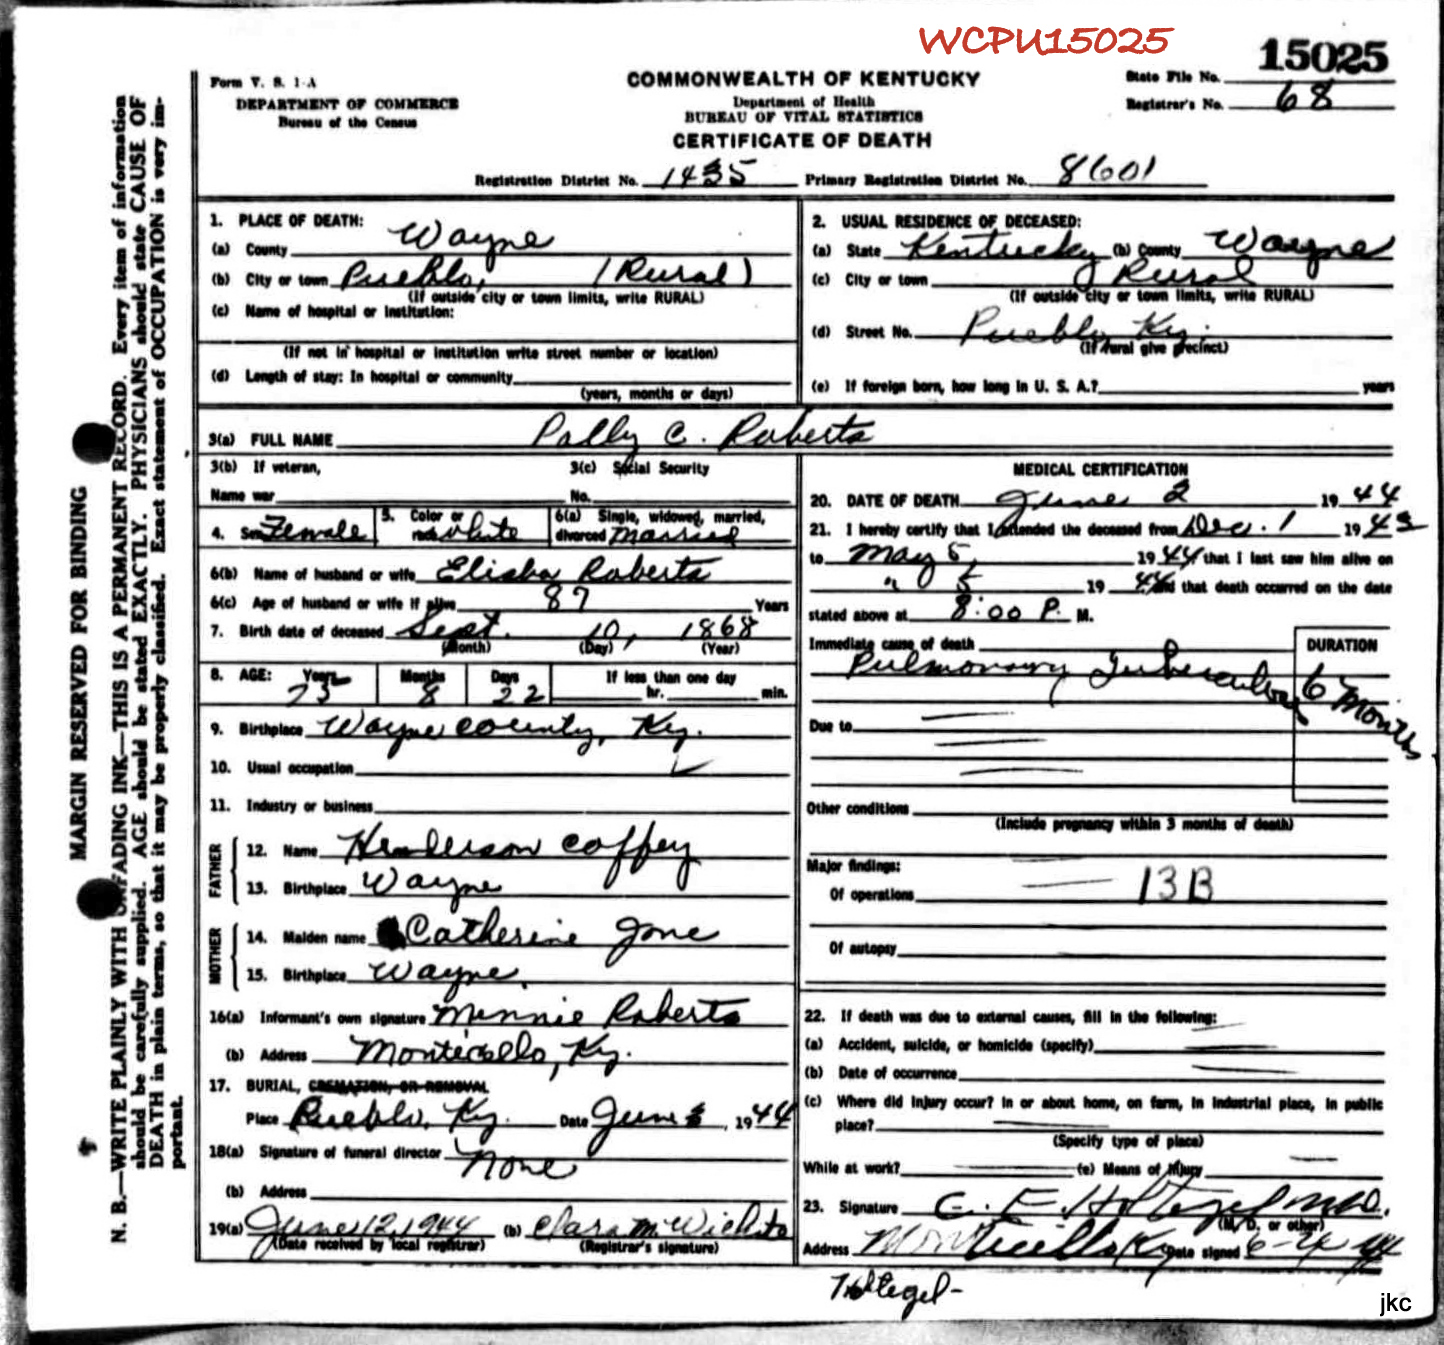 WCPU15025
15025
Form V. S. 1-A
DEPARTMENT OF COMMERCE
Bureau of the Census
COMMONWEALTH OF KENTUCKY
Department of Health
BUREAU OF VITAL STATISTICS
CERTIFICATE OF DEATH
State File No.
Registrar's No. 68
Registration District No. 1435 Primary Registration District No. 8601
MARGIN RESERVED FOR BINDING
N. B.—WRITE PLAINLY WITH UNFADING INK—THIS IS A PERMANENT RECORD. Every item of information
should be carefully supplied. AGE should be stated EXACTLY. PHYSICIANS should state CAUSE OF
DEATH in plain terms, so that it may be properly classified. Exact statement of OCCUPATION is very im-
portant.
1. PLACE OF DEATH:
(a) County Wayne
(b) City or town Pueblo, (Rural)
(If outside city or town limits, write RURAL)
(c) Name of hospital or institution:
(If not in hospital or institution write street number or location)
(d) Length of stay: In hospital or community
(years, months or days)
2. USUAL RESIDENCE OF DECEASED:
(a) State Kentucky (b) County Wayne
(c) City or town Rural
(If outside city or town limits, write RURAL)
(d) Street No. Pueblo, Ky.
(If rural give precinct)
(e) If foreign born, how long in U. S. A.? years
3(a) FULL NAME Polly C. Roberts
3(b) If veteran, 3(c) Social Security
Name war No.
4. Sex Female 5. Color or race White 6(a) Single, widowed, married, divorced Married
6(b) Name of husband or wife Elisha Roberts
6(c) Age of husband or wife if alive 87 Years
7. Birth date of deceased Sept. 10, 1868
(Month) (Day) (Year)
8. AGE: Years Months Days If less than one day
75 8 22 hr. min.
9. Birthplace Wayne County, Ky.
10. Usual occupation
11. Industry or business
FATHER
12. Name Henderson Coffey
13. Birthplace Wayne
MOTHER
14. Maiden name Catherine Jone
15. Birthplace Wayne
16(a) Informant's own signature Minnie Roberts
(b) Address Monticello, Ky.
17. BURIAL, CREMATION, OR REMOVAL
Place Pueblo, Ky. Date June 3, 1944
18(a) Signature of funeral director None
(b) Address
19(a) June 12, 1944 (b) Clara M.
(Date received by local registrar) (Registrar's signature)
MEDICAL CERTIFICATION
20. DATE OF DEATH June 2 1944
21. I hereby certify that I attended the deceased from Dec. 1 1943
to May 5, 1944 that I last saw him alive on
" 5 1944 and that death occurred on the date
stated above at 8:00 P. M.
Immediate cause of death DURATION
Pulmonary Tuberculosis 6 Months
Due to
Other conditions
(Include pregnancy within 3 months of death)
Major findings:
Of operations 13B
Of autopsy
22. If death was due to external causes, fill in the following:
(a) Accident, suicide, or homicide (specify)
(b) Date of occurrence
(c) Where did injury occur? In or about home, on farm, in industrial place, in public
place?
(Specify type of place)
While at work? (e) Means of injury
23. Signature C. E. Holtegel M.D.
(M. D. or other)
Address Monticello Ky Date signed 6-4-44
Holtegel-
jkc